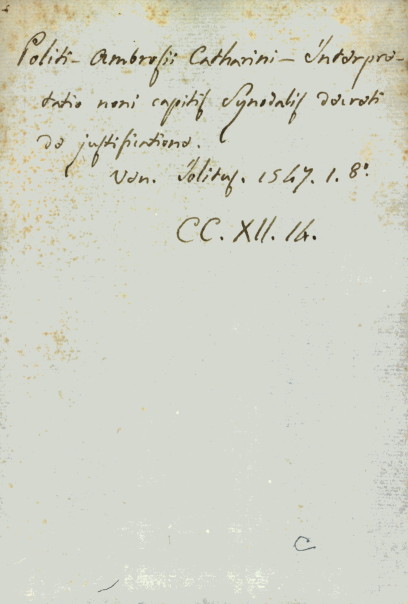 Politi - Ambrosii Catharini - Interpre-
tatio noni capitis Synodalis decreti
de justificatione.
Ven. Iolitus. 1547. 1. 8º.
CC. XII. 14.
C